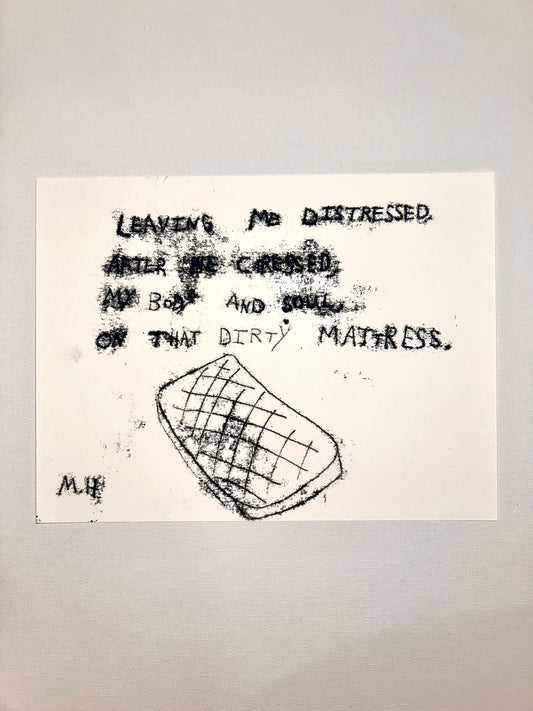 LEAVING ME DISTRESSED.
AFTER HE CARESSED,
MY BODY AND SOUL,
ON THAT DIRTY MATTRESS.
M.H